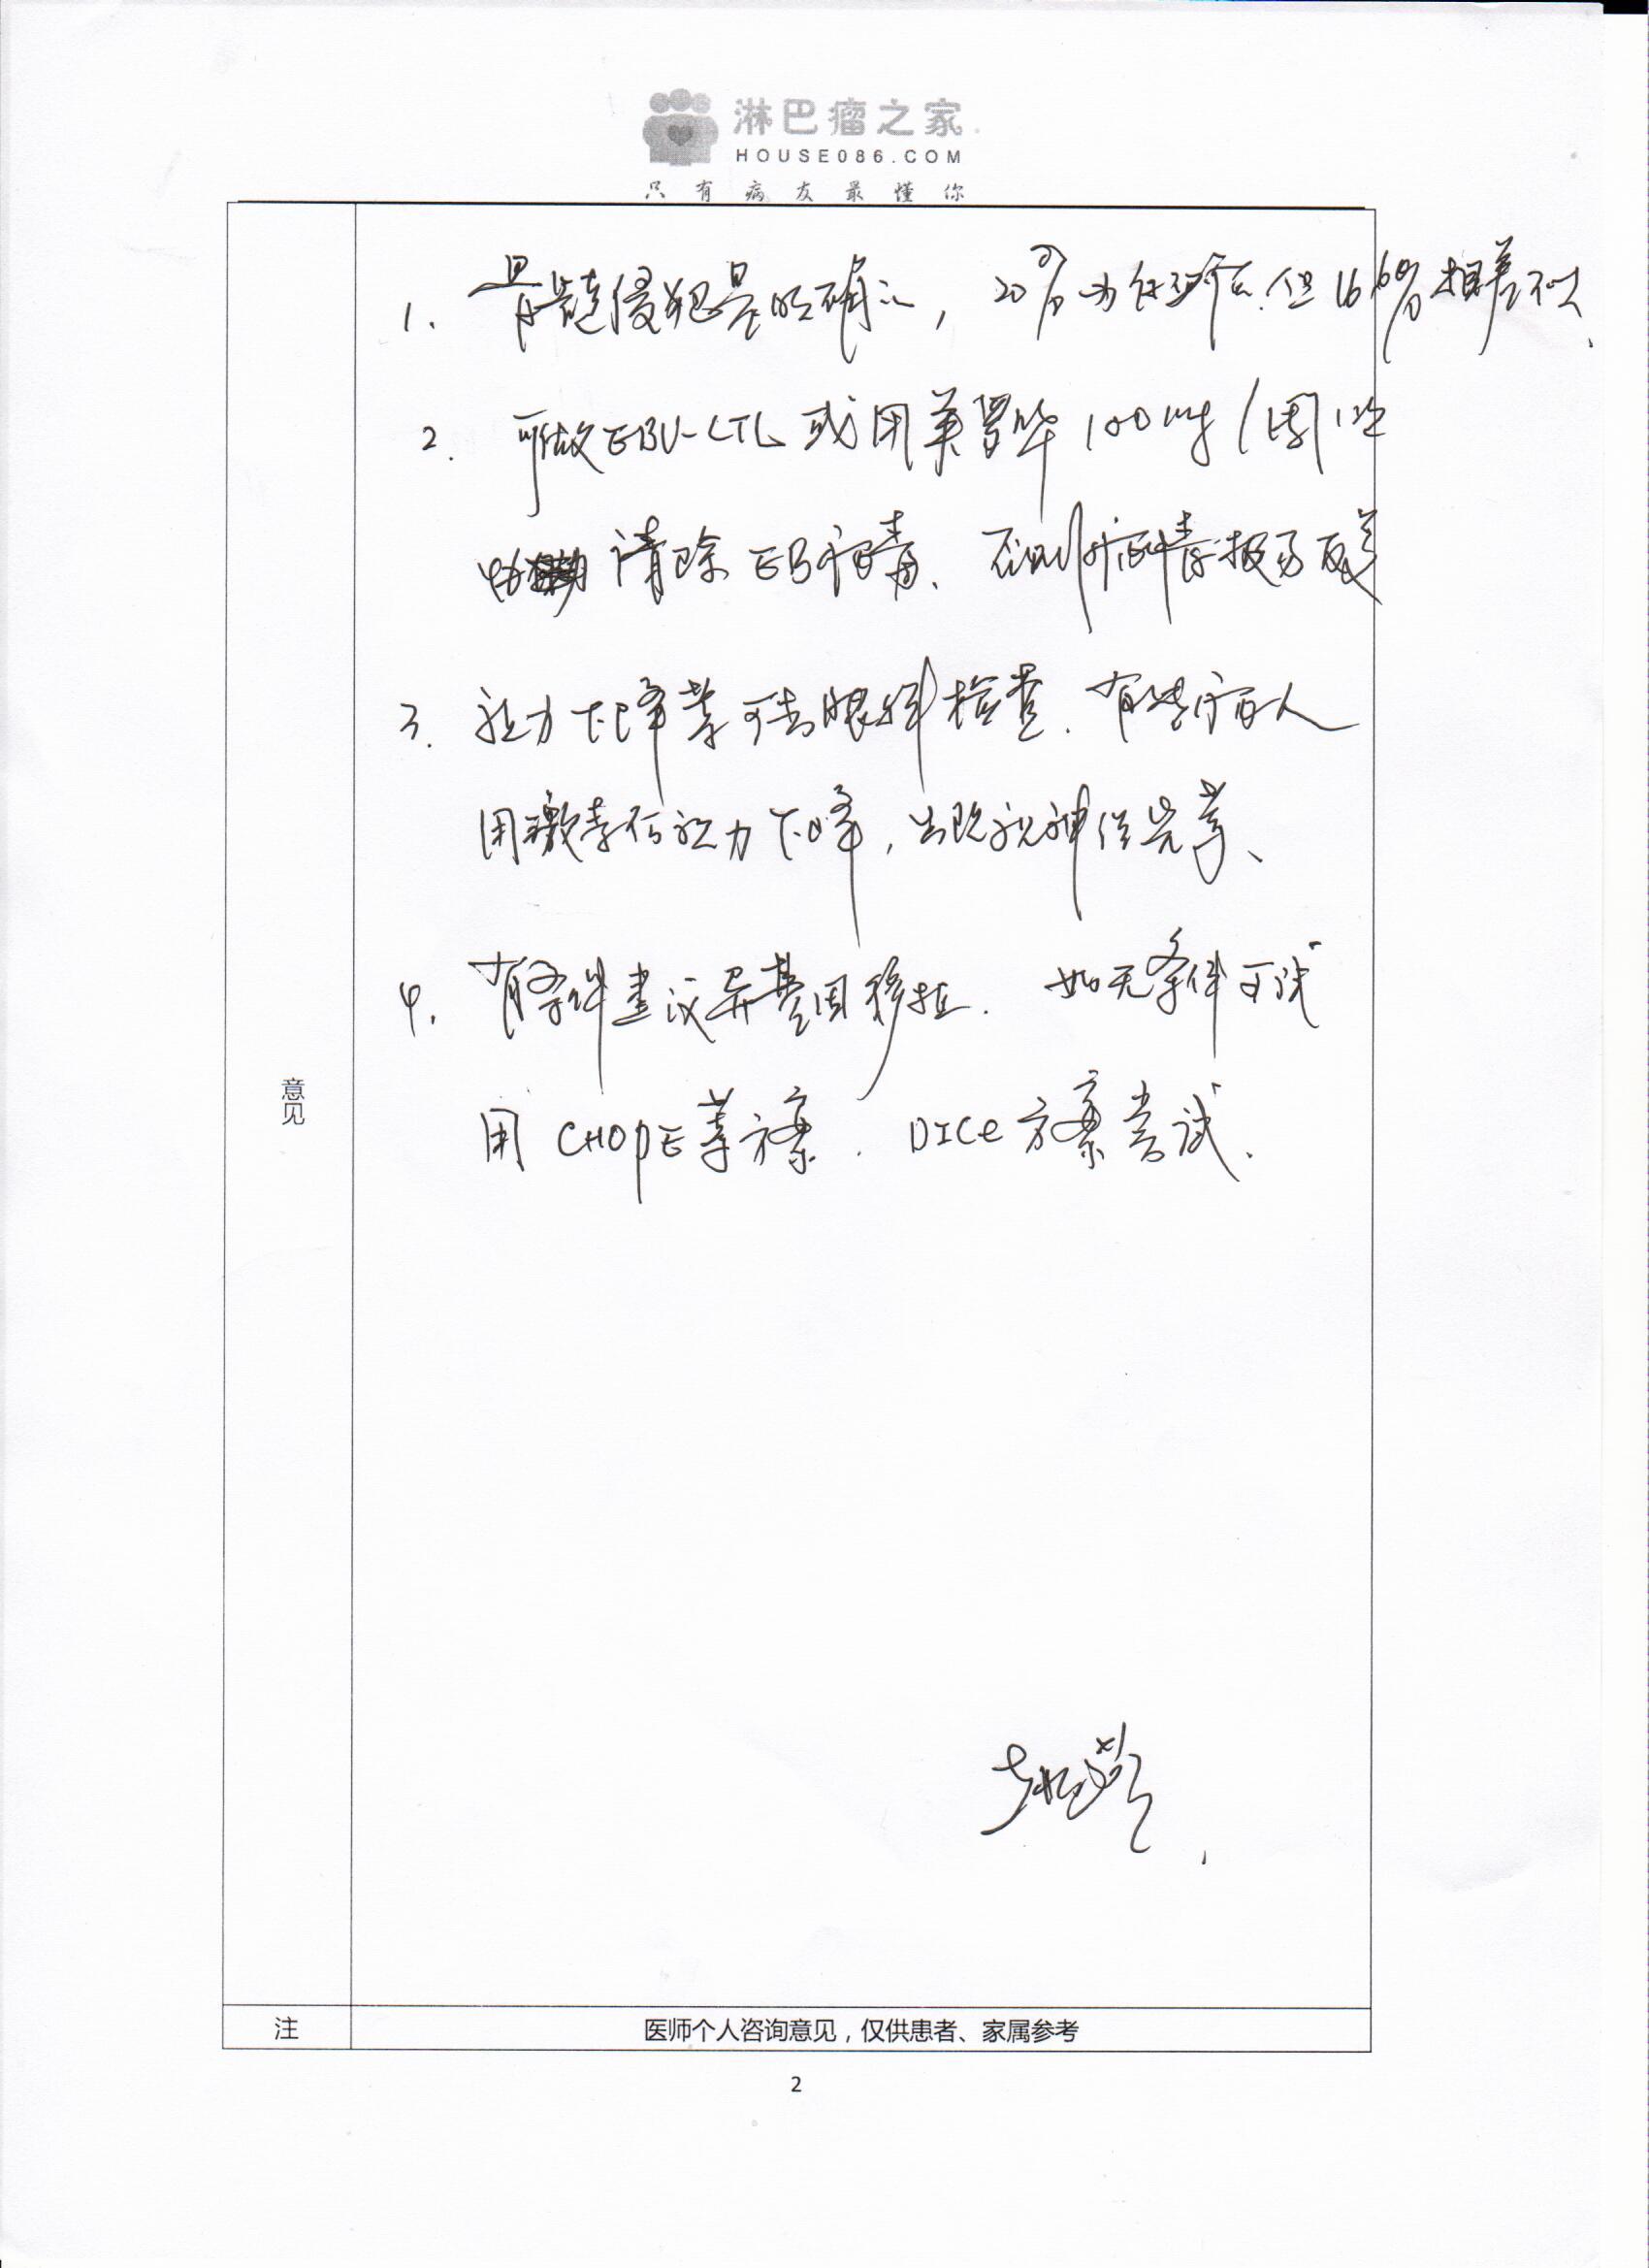 淋巴瘤之家
HOUSE086.COM
只有病友最懂你
1. 骨髓侵犯是明确的, 20%为 但16.6%相差不大、
2. 可做EBV-CTL或用美罗华100mg/周1次
清除EB病毒、否则病情极易反复
3. 视力下降等可去眼科检查. 有些病人
用激素后视力下降, 出现视神经炎等、
4. 有条件建议异基因移植. 如无条件可试
用CHOPE等方案. DICE方案尝试.
意见
注
医师个人咨询意见,仅供患者、家属参考
2